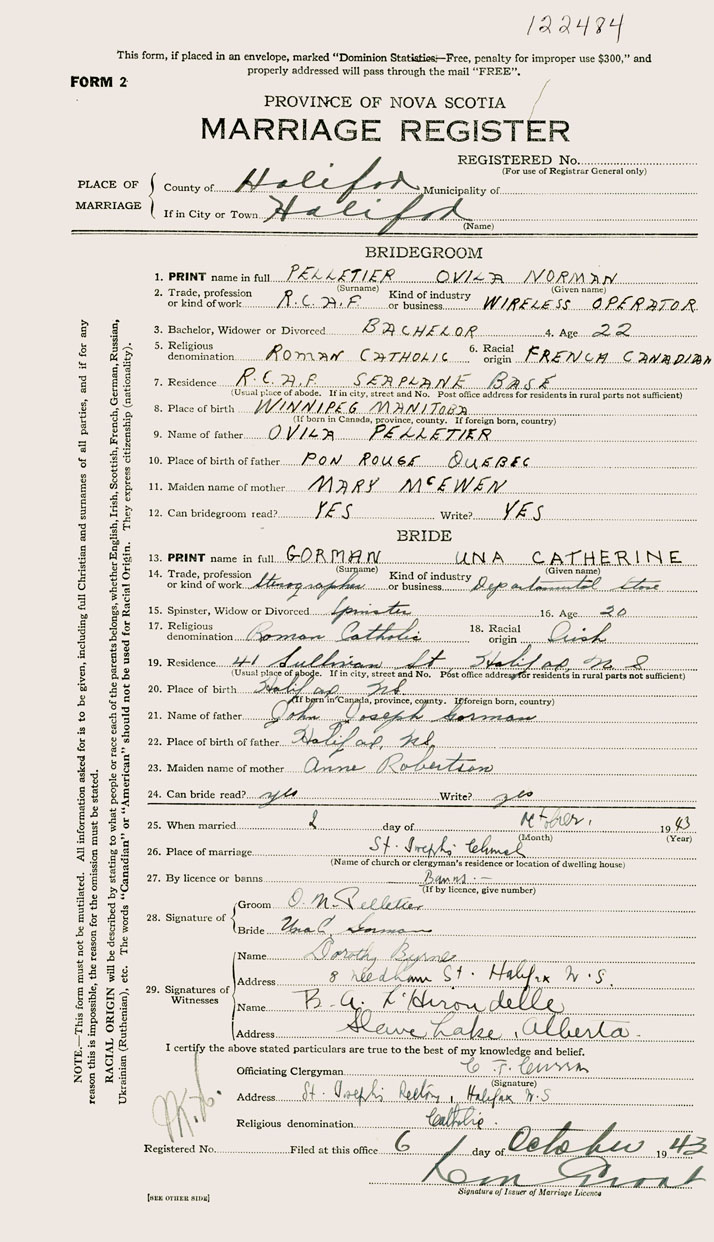 122484
This form, if placed in an envelope, marked "Dominion Statistics—Free, penalty for improper use $300," and
properly addressed will pass through the mail "FREE".
FORM 2
PROVINCE OF NOVA SCOTIA
MARRIAGE REGISTER
REGISTERED No.
(For use of Registrar General only)
PLACE OF MARRIAGE
County of Halifax Municipality of
If in City or Town Halifax
(Name)
BRIDEGROOM
1. PRINT name in full PELLETIER OVILA NORMAN
(Surname) (Given name)
2. Trade, profession or kind of work R.C.A.F Kind of industry or business WIRELESS OPERATOR
3. Bachelor, Widower or Divorced BACHELOR 4. Age 22
5. Religious denomination ROMAN CATHOLIC 6. Racial origin FRENCH CANADIAN
7. Residence R.C.A.F. SEAPLANE BASE
(Usual place of abode. If in city, street and No. Post office address for residents in rural parts not sufficient)
8. Place of birth WINNIPEG MANITOBA
(If born in Canada, province, county. If foreign born, country)
9. Name of father OVILA PELLETIER
10. Place of birth of father PON ROUGE QUEBEC
11. Maiden name of mother MARY McEWEN
12. Can bridegroom read? YES Write? YES
BRIDE
13. PRINT name in full GORMAN UNA CATHERINE
(Surname) (Given name)
14. Trade, profession or kind of work Stenographer Kind of industry or business Departmental store
15. Spinster, Widow or Divorced Spinster 16. Age 20
17. Religious denomination Roman Catholic 18. Racial origin Irish
19. Residence 41 Sullivan St, Halifax N S
(Usual place of abode. If in city, street and No. Post office address for residents in rural parts not sufficient)
20. Place of birth Halifax, NS
(If born in Canada, province, county. If foreign born, country)
21. Name of father John Joseph Gorman
22. Place of birth of father Halifax, NS,
23. Maiden name of mother Anne Robertson
24. Can bride read? yes Write? yes
25. When married 2 day of October, 1943
(Month) (Year)
26. Place of marriage St. Joseph's Church
(Name of church or clergyman's residence or location of dwelling house)
27. By licence or banns Banns.—
(If by licence, give number)
28. Signature of
Groom O. N. Pelletier
Bride Una C. Gorman
29. Signatures of Witnesses
Name Dorothy Byrne
Address 8 Needham St. Halifax N.S.
Name B. A. L'Hirondelle
Address Slave Lake, Alberta.
I certify the above stated particulars are true to the best of my knowledge and belief.
Officiating Clergyman C. F. Curran
(Signature)
Address St. Joseph's Rectory, Halifax N.S
Religious denomination Catholic.
Registered No. Filed at this office 6 day of October 1943
Signature of Issuer of Marriage Licence
[SEE OTHER SIDE]
NOTE.—This form must not be mutilated. All information asked for is to be given, including full Christian and surnames of all parties, and if for any
reason this is impossible, the reason for the omission must be stated.
RACIAL ORIGIN will be described by stating to what people or race each of the parents belongs, whether English, Irish, Scottish, French, German, Russian,
Ukrainian (Ruthenian), etc. The words "Canadian" or "American" should not be used for Racial Origin. They express citizenship (nationality).